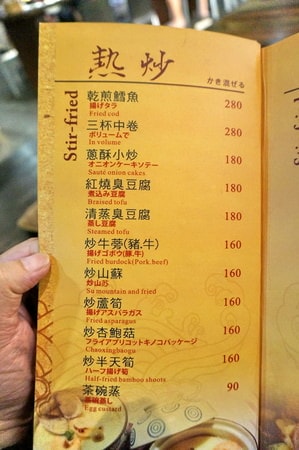 熱炒
かき混ぜる
Stir-fried
乾煎鱈魚 280
揚げタラ
Fried cod
三杯中卷 280
ボリュームで
In volume
蔥酥小炒 180
オニオンケーキソテー
Sauté onion cakes
紅燒臭豆腐 180
煮込み豆腐
Braised tofu
清蒸臭豆腐 180
蒸し豆腐
Steamed tofu
炒牛蒡(豬.牛) 160
揚げゴボウ(豚.牛)
Fried burdock(Pork.beef)
炒山蘇 160
炒山苏
Su mountain and fried
炒蘆筍 160
揚げアスパラガス
Fried asparagus
炒杏鮑菇 160
フライアプリコットキノコパッケージ
Chaoxingbaogu
炒半天筍 160
ハーフ揚げ筍
Half-fried bamboo shoots
茶碗蒸 90
茶碗蒸し
Egg custard